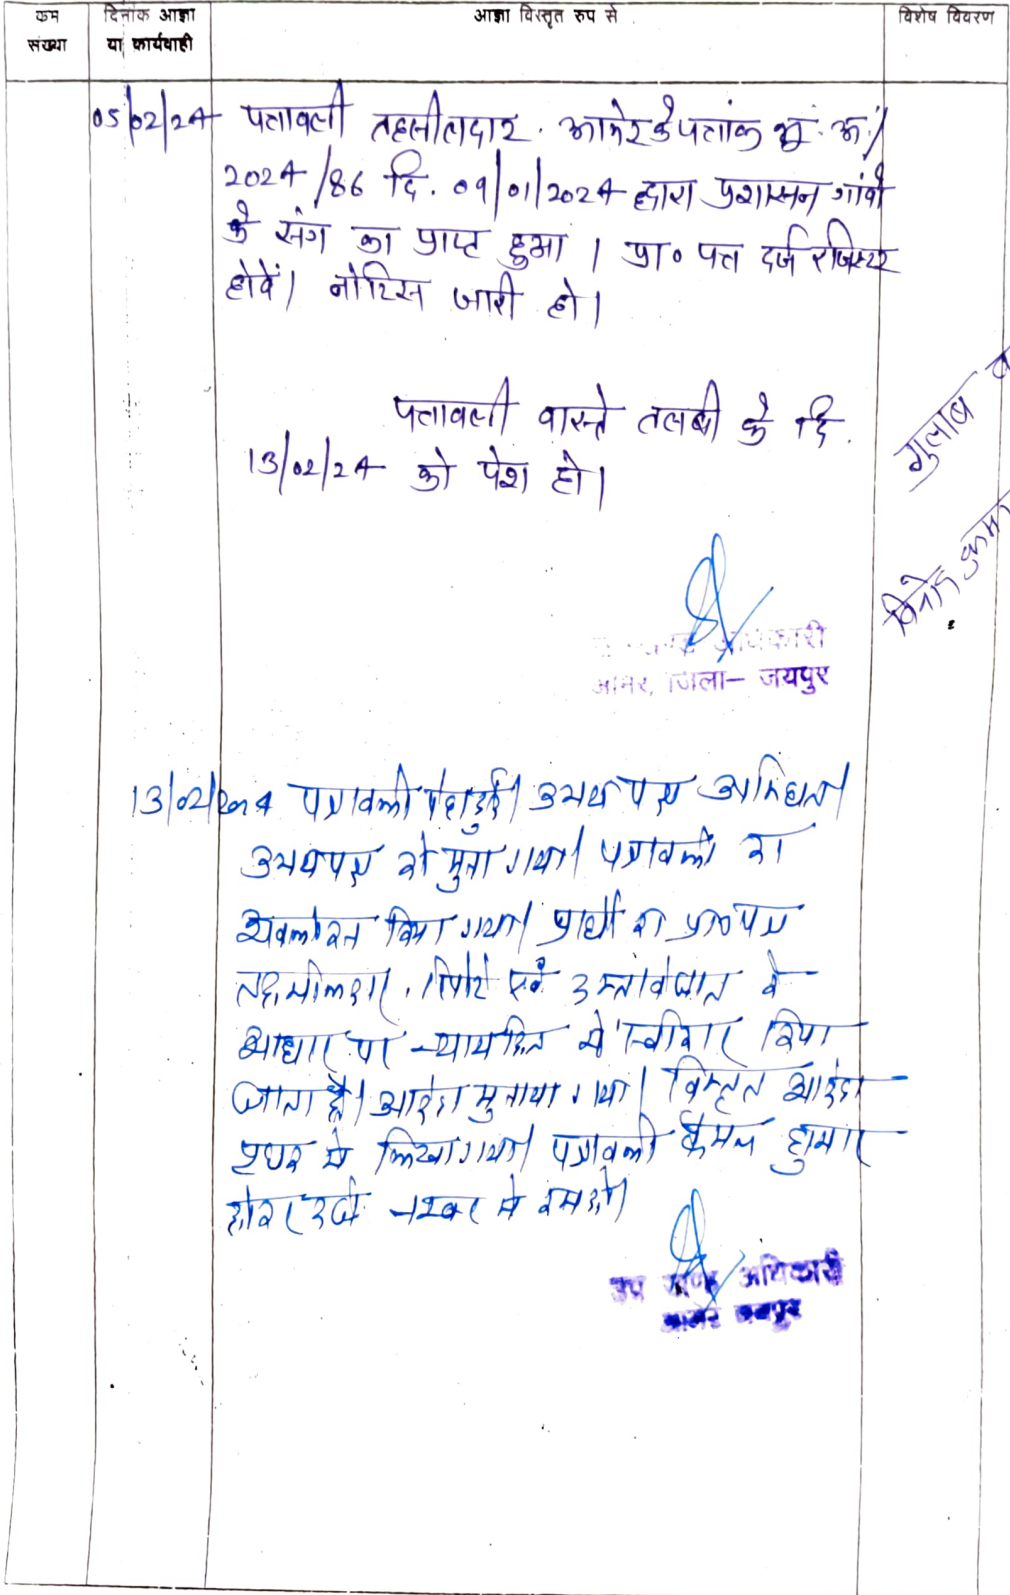 क्रम संख्या
दिनांक आज्ञा या कार्यवाही
आज्ञा विस्तृत रुप से
विशेष विवरण
05/02/24 पत्रावली तहसीलदार आमेर के पत्रांक भू.अ./
2024/86 दि. 09/01/2024 द्वारा प्रशासन गांवो
के संग का प्राप्त हुआ। प्रा० पत्र दर्ज रजिस्टर
होवें। नोटिस जारी हो।
पत्रावली वास्ते तलबी के दि.
13/02/24 को पेश हो।
गुलाब
विनोद कुमार
अधिकारी
आमेर, जिला– जयपुर
13/02/2024 पत्रावली पेश हुई। उभय पक्ष
उभयपक्ष को सुना गया। पत्रावली का
अवलोकन किया गया। प्रार्थी का प्रा०पत्र
तहसीलदार रिपोर्ट एवं दस्तावेजात के
आधार पर न्यायहित मे स्वीकार किया
जाता है। आदेश सुनाया गया। विस्तृत आदेश
पृथक से लिखा गया। पत्रावली फैसल शुमार
होकर नम्बर से कम हो।
उप खण्ड अधिकारी
आमेर जयपुर